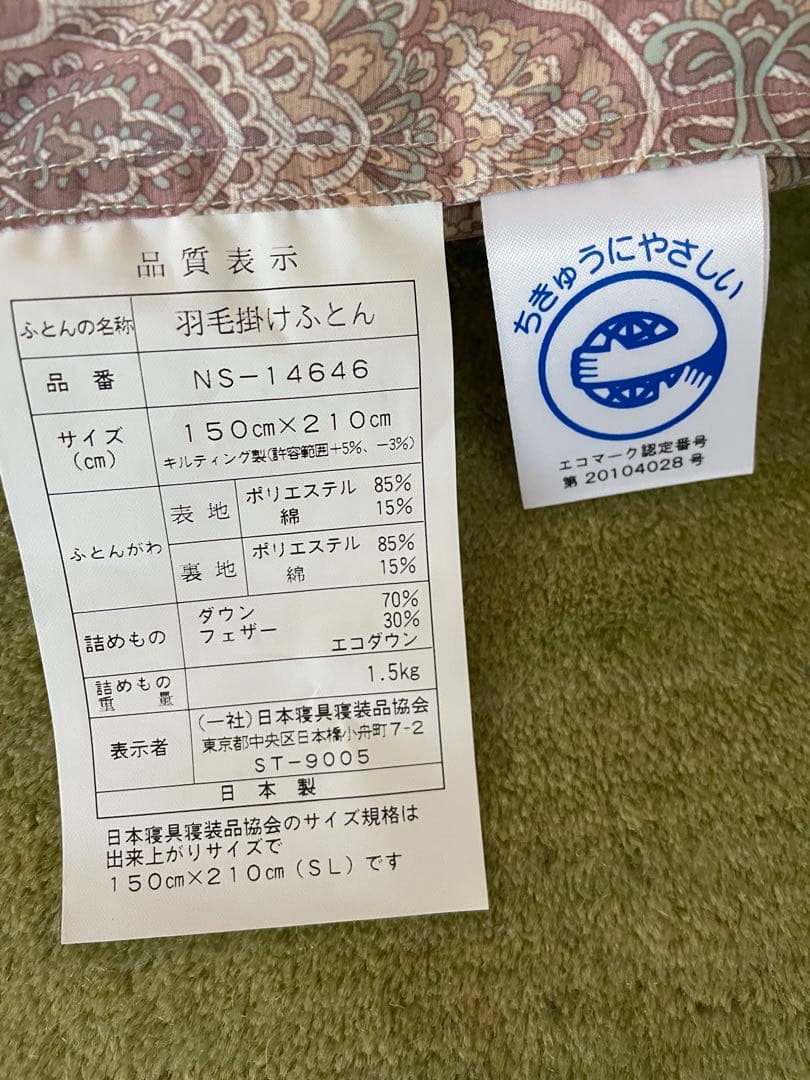 品質表示
ふとんの名称 羽毛掛けふとん
品番 NS-14646
サイズ(cm) 150cm×210cm
キルティング製(許容範囲+5%、-3%)
ふとんがわ 表地 ポリエステル 85%
綿 15%
裏地 ポリエステル 85%
綿 15%
詰めもの ダウン 70%
フェザー 30%
エコダウン
詰めもの重量 1.5kg
表示者 (一社)日本寝具寝装品協会
東京都中央区日本橋小舟町7-2
ST-9005
日本製
日本寝具寝装品協会のサイズ規格は
出来上がりサイズで
150cm×210cm(SL)です
ちきゅうにやさしい
エコマーク認定番号
第 20104028 号